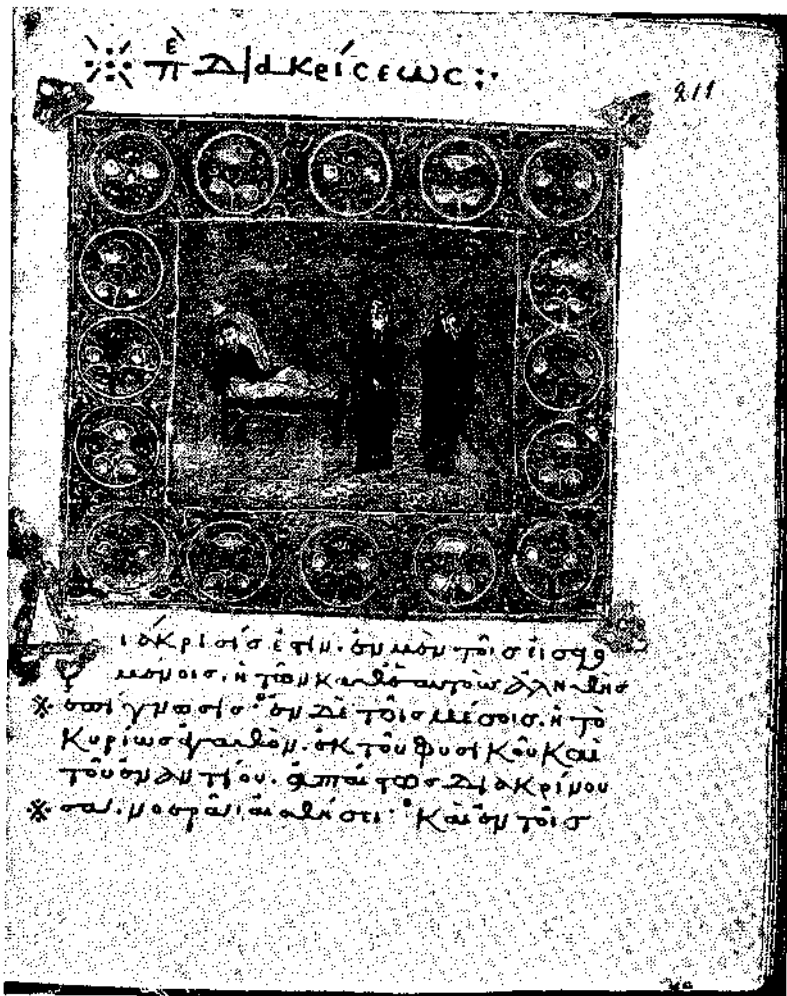 πὲ Διακρίσεως:·
211
Διάκρισίς ἐστιν· ἐν μὲν τοῖς εἰσαγο
μένοις· ἡ τῶν καθ ἑαυτοὺς ἀληθὴς
ἐπίγνωσις· ἐν δὲ τοῖς μέσοις· ἡ τὸ
κυρίως ἀγαθὸν· ἐκ τοῦ φυσικοῦ καὶ
τοῦ ἐναντίου· ἀπταίστως διακρίνου
σα· νοερὰ αἴσθησις· καὶ ἐν τοῖς